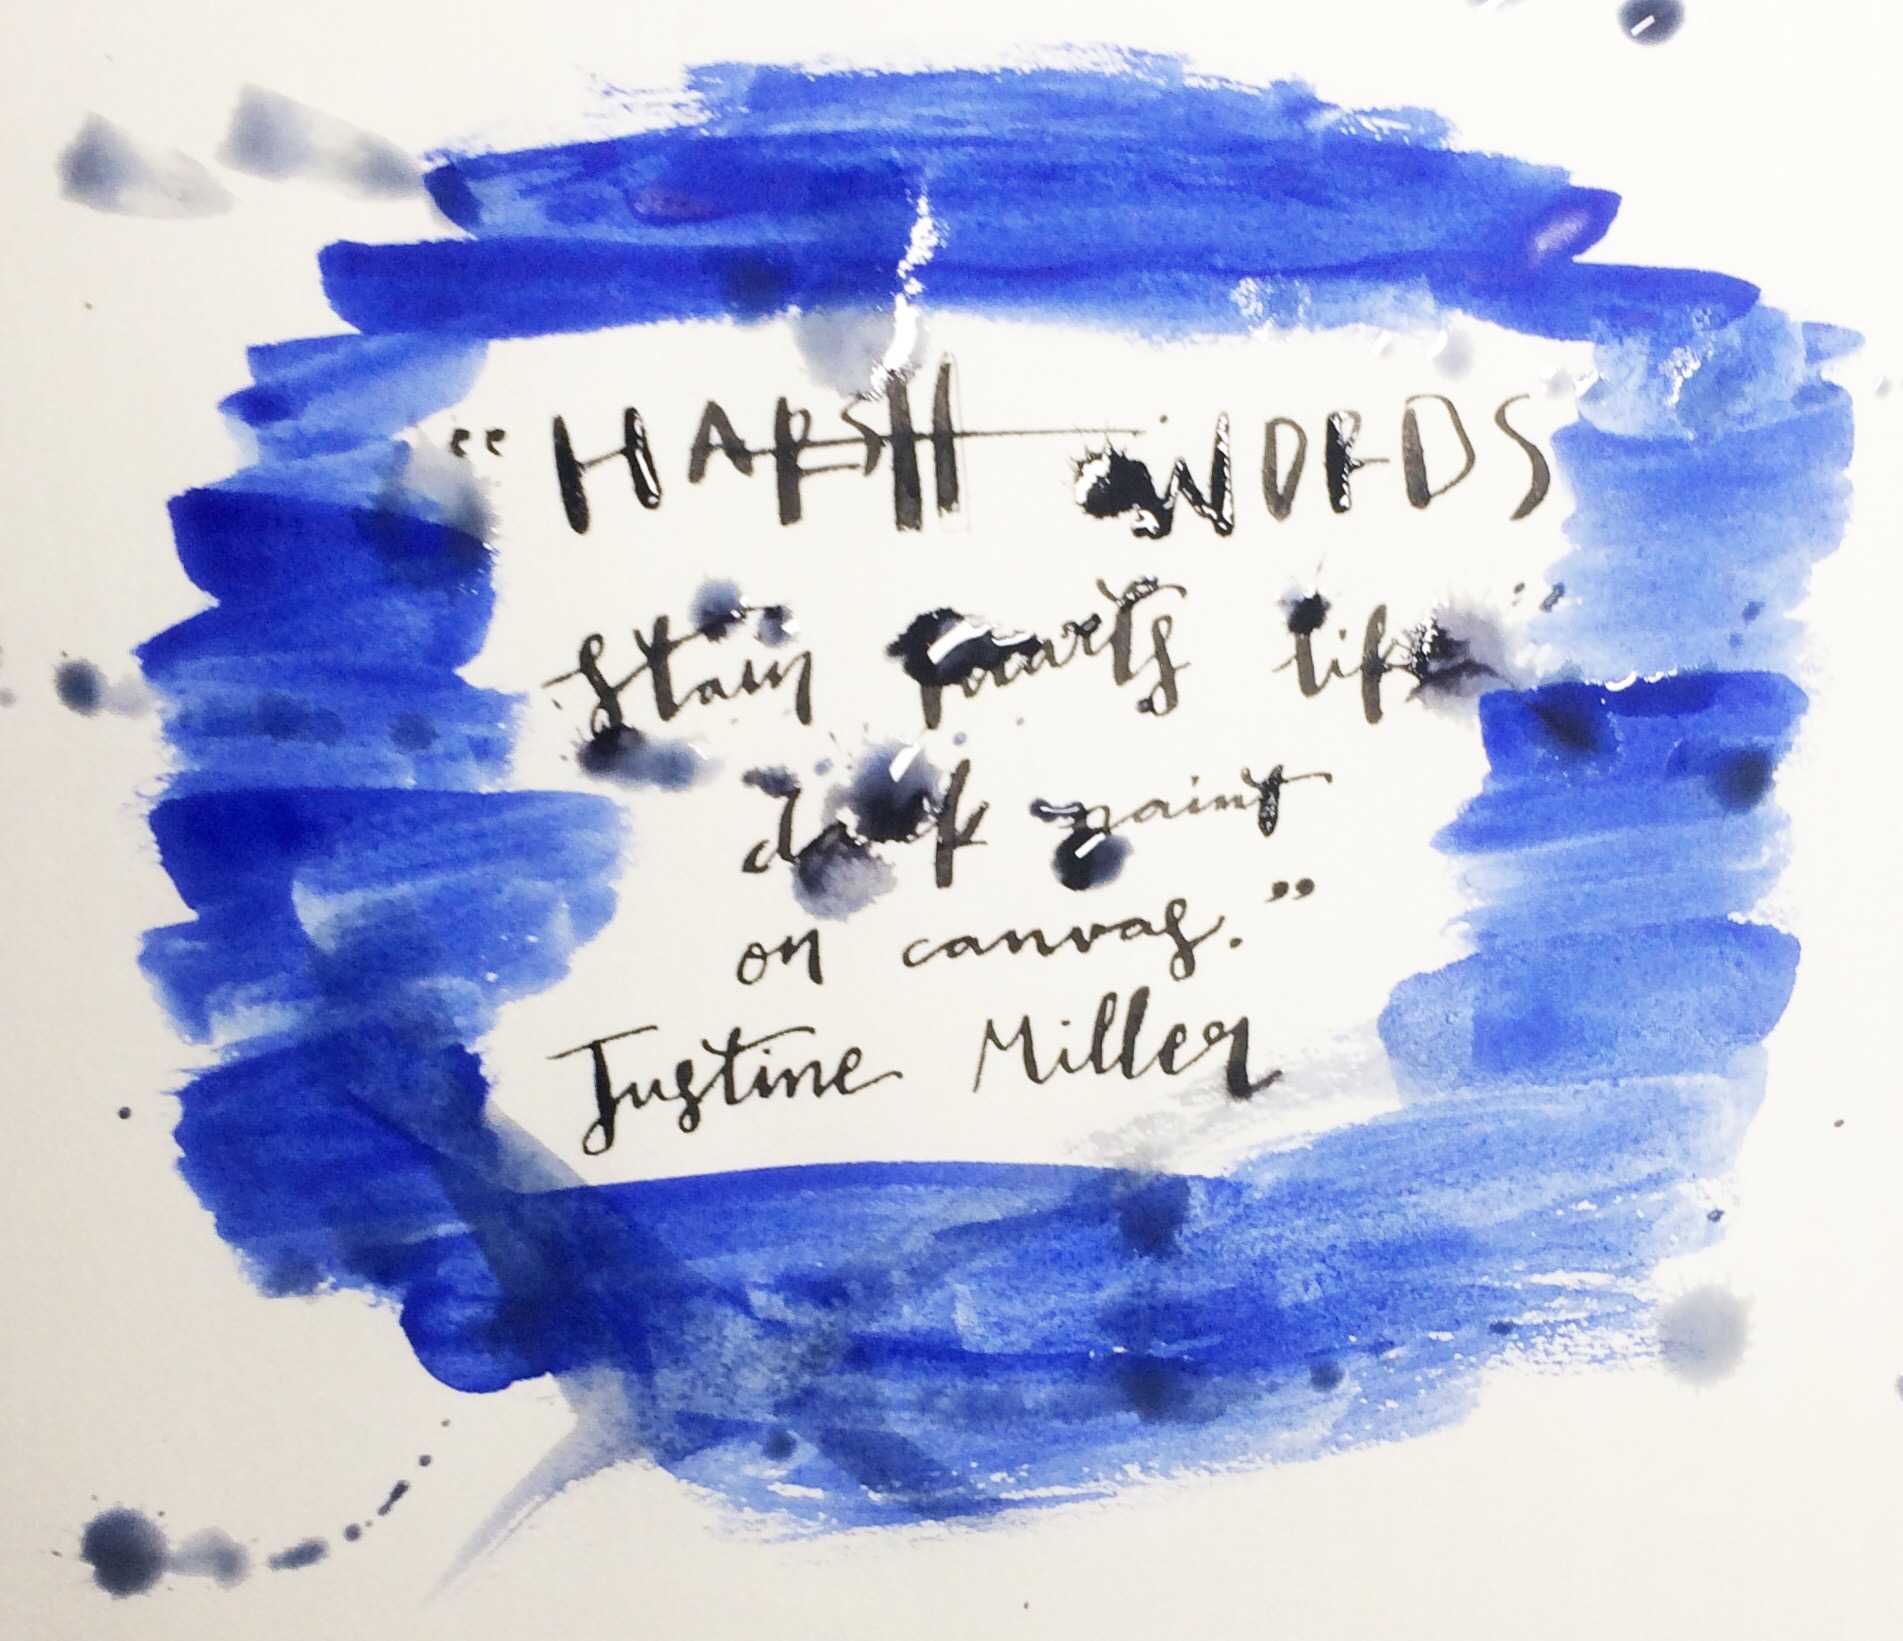 “HARSH WORDS
stain hearts like
dark paint
on canvas.”
Justine Miller